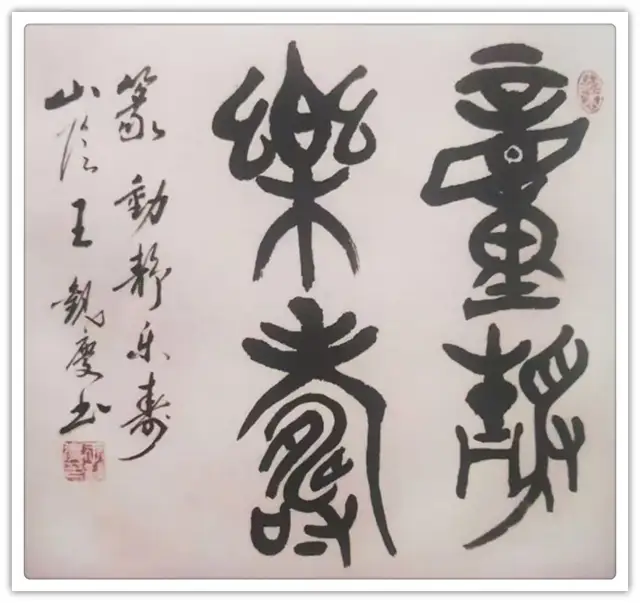 童靜
樂壽
篆動静乐寿
山陰王慶书